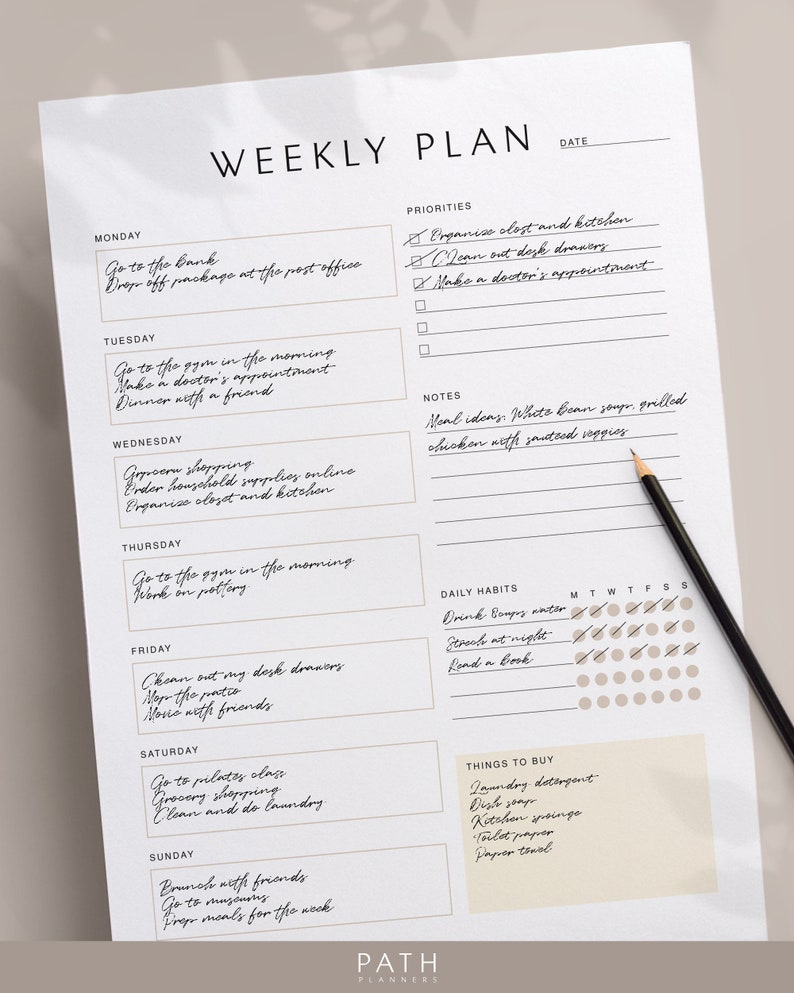 WEEKLY PLAN
DATE
MONDAY
Go to the Bank
Drop off package at the post office
TUESDAY
Go to the gym in the morning
Make a doctor's appointment
Dinner with a friend
WEDNESDAY
Grpceru shopping
Order household supplies online
Organize closet and kitchen
THURSDAY
Go to the gym in the morning
Work on pottery
FRIDAY
Clean out my desk drawers
Mop the patio
Movie with friends
SATURDAY
Go to pilates class
Grocery shopping
Clean and do laundry
SUNDAY
Brunch with friends
Go to museums
Prep meals for the week
PRIORITIES
Organize clost and kitchen
CLean out desk drawers
Make a doctor's appointment
NOTES
Meal ideas: White bean soup, grilled
chicken with sauteed veggies
DAILY HABITS
M T W T F S S
Drink 8cups water
Strech at night
Read a book
THINGS TO BUY
Laundry detergent
Dish soap
Kitchen spoinge
Toilet paper
Paper towel
PATH
PLANNERS